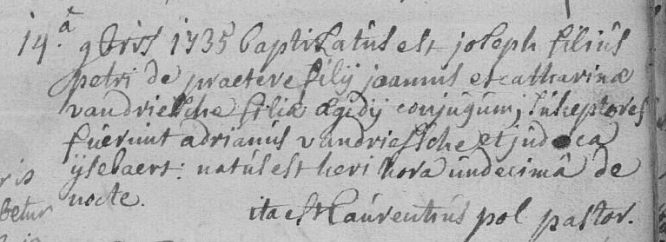 14.a 9bris 1735 baptizatus est joseph filius
petri de praetere filij joannis et catharinæ
vandriessche filiæ ægidij conjugum, susceptores
fuerunt adrianus vandriessche et judoca
ysebaert: natus est heri hora undecimâ de
nocte.
ita est Laurentius pol pastor.
ris
betur